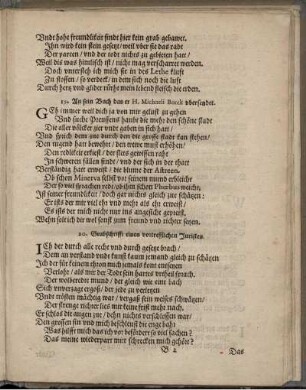 Vndt hohe freundtlikeit findt hier kein grab gebawet.
Ihn wird kein stein gesetzt/ weil vber sie das radt
Der parcen/ vnd der todt nichts zu gebieten hatt/
Weil das was himlisch ist/ nicht mag verscharret werden.
Doch vnterscht ich mich sie in des Lethe klufft
Zu stossen/ so verdeck/ in dem sich noch die lufft
Durch hertz vnd glider rührt mein lebend fleisch die erden.
19. An sein Buch das er H. Michaeli Borck vbersendet.
GEh immer weil dich ja von mir gelust zu gehen
Vnd suche Preussens haubt die mehr den schöne stadt
Die aller völcker zier vndt gaben in sich hatt/
Vnd sprich dem zu durch den die grosse stadt kan stehen/
Den jegend hatt bewehrt/ den trewe must erhöhen/
Den redlikeit erkiest/ der stets gewissen raht
In schweren fällen findt/ vnd der sich in der that
Verständig hatt erweist/ die blume der Astreen.
Ob schon Minerva selbst vor seinem mund erbleiche
Der so viel sprachen redt/ ob ihm schon Phoebus weicht;
Ist seiner freundlikeit/ doch gar nichts gleich zur schätzen:
Er ists der mir viel ehr vnd mehr als ehr erweist/
Es ists der mich nicht nur ins angesicht gepreist.
Wehm soltestu dir wol sonst zum freund vnd richter setzen.
20. Grabschrifft eines vortrefflichen Juristen.
ICh der durch alle recht vnd durch gesetz brach/
Dem an verstand vndt kunst kaum jemand gleich zu schätzen
Jch der für keinem thron mich jemals kont entsetzen
Verlohr/ als mir der Todt sein hartes vrtheil sprach.
Der wolberedte mund/ der gleich wie eine bach
Sich vnverzagt ergoß/ der jede zu verletzen
Vndt trösten mächtig war/ vergaß sein weises schwätzen/
Der strenge richter ließ mir keine frist mehr nach.
Er schlos die augen zu/ dehn nichts verschlossen war/
Den grossen sin vnd mich beschleust die enge bahr;
Was hilfft mich das ich vor besonders so viel sachen?
Das meine wiederpart mir schrecken mich gehört?
B 2 Das